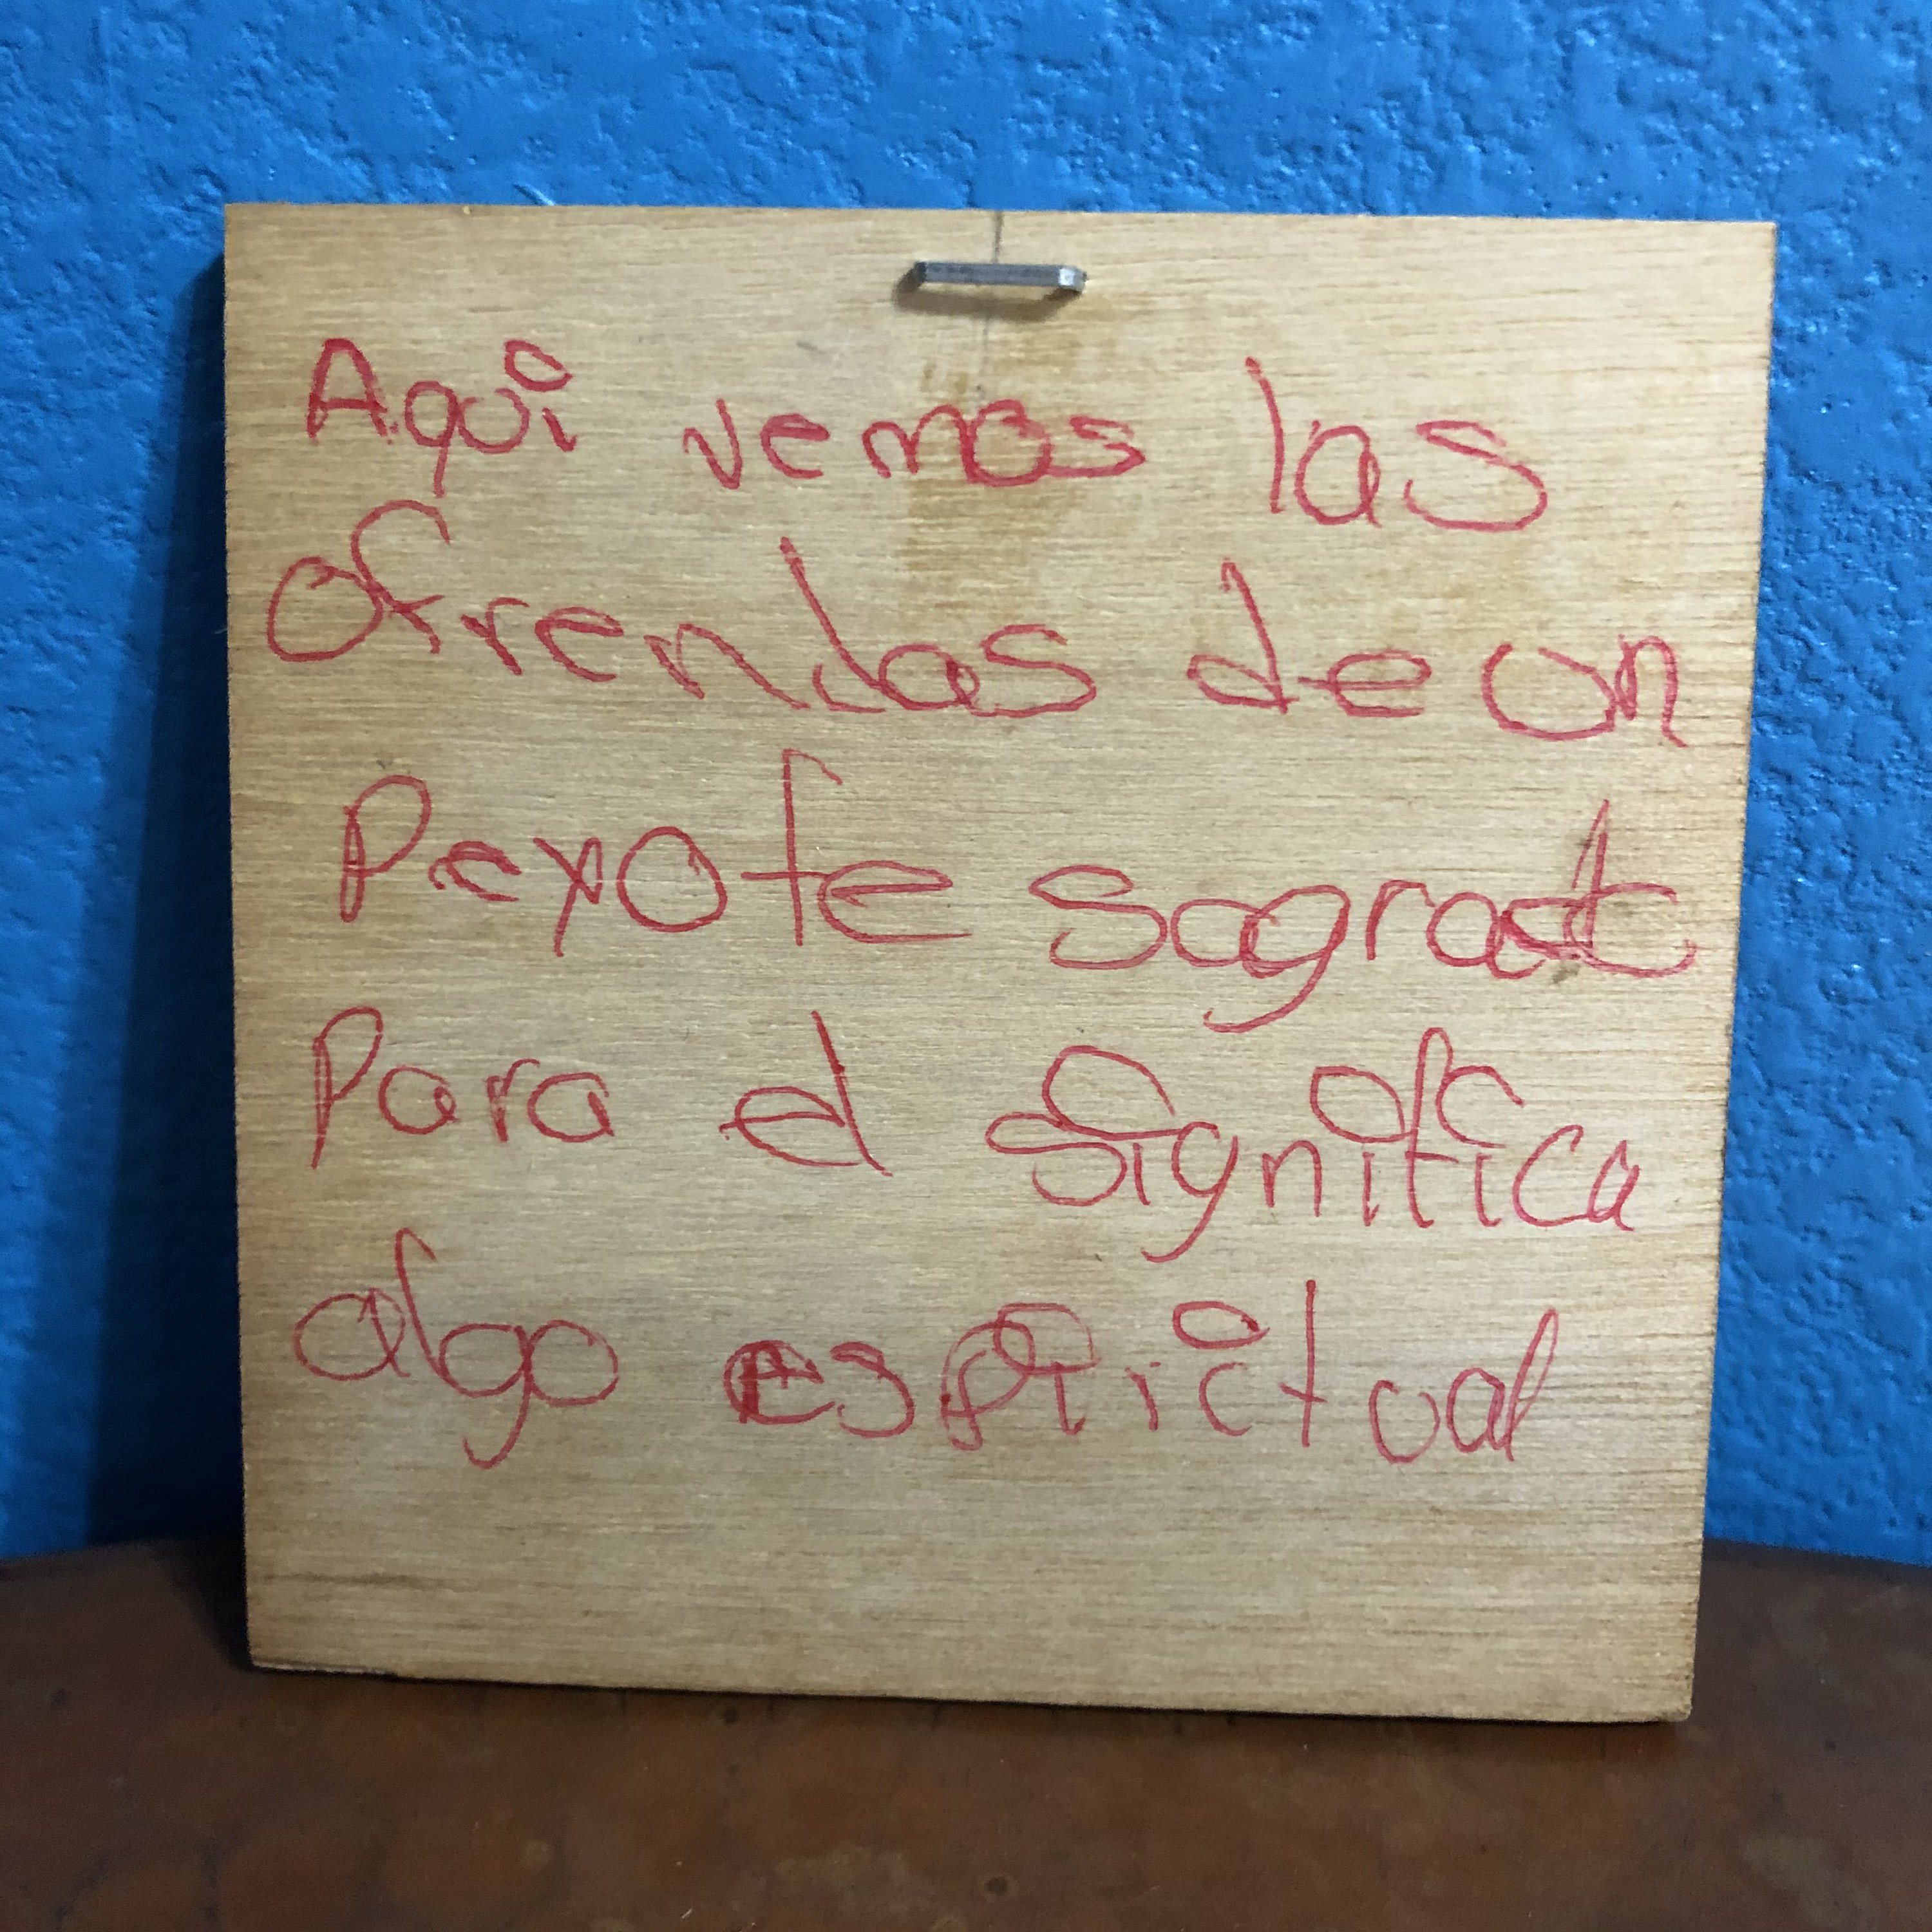 Aqui vemos las
ofrendas de un
Peyote sagrado
Para el significa
algo espirictual